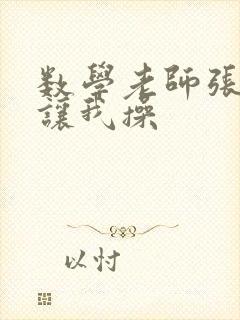 数學老師張
讓我操
以忖